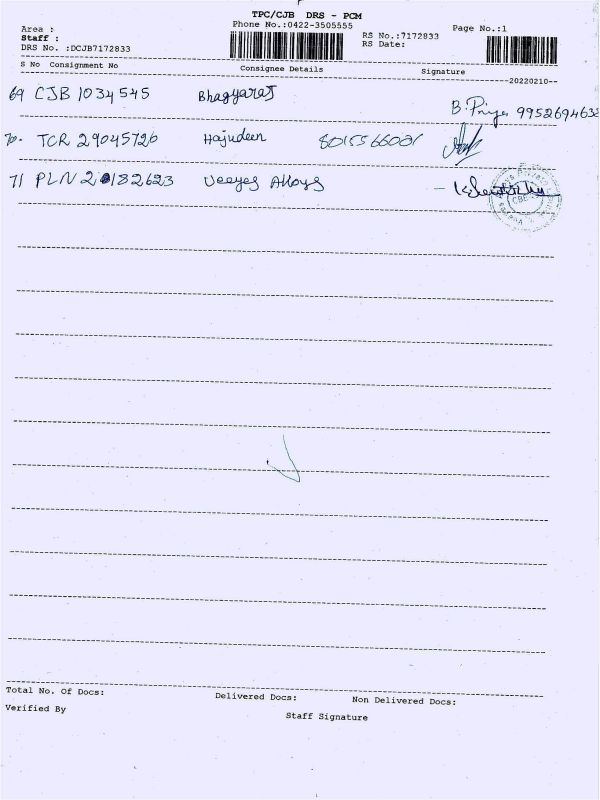 TPC/CJB DRS - PCM
Area :
Phone No.:0422-3505555
Page No.:1
Staff :
RS No.:7172833
DRS No. :DCJB7172833
RS Date:
S No Consignment No Consignee Details Signature
--20220210--
69 CJB 1034545 Bhagyaraj B. Priya 9952694632
70. TCR 29045726 Hajudeen 8015566001
71 PLN 20182623 Veeyes Alloys
Total No. Of Docs: Delivered Docs: Non Delivered Docs:
Verified By Staff Signature